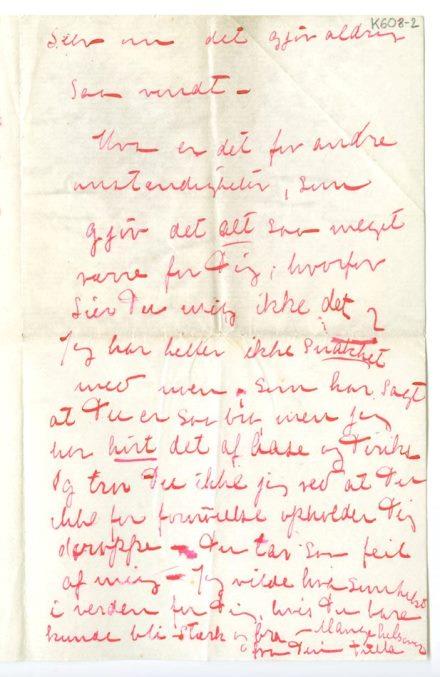 K608-2
selv om det gjør aldrig
saa vondt –
Hva er det for andre
omstendigheter, som
gjør det alt saa meget
værre for Dig; hvorfor
sier Du mig ikke det?
Jeg har heller ikke snakket
med noen, som har sagt
at Du er saa bra men jeg
har hørt det af Aase og
Og tror Du ikke jeg ved at Du
ikke for fornøielse opholder Dig
deroppe – Du tar saa feil
af mig – Jeg vilde hva somhelst
i verden for Dig, hvis Du bare
kunde bli stærk og bra – Mange hilsener
fra Din Tulla